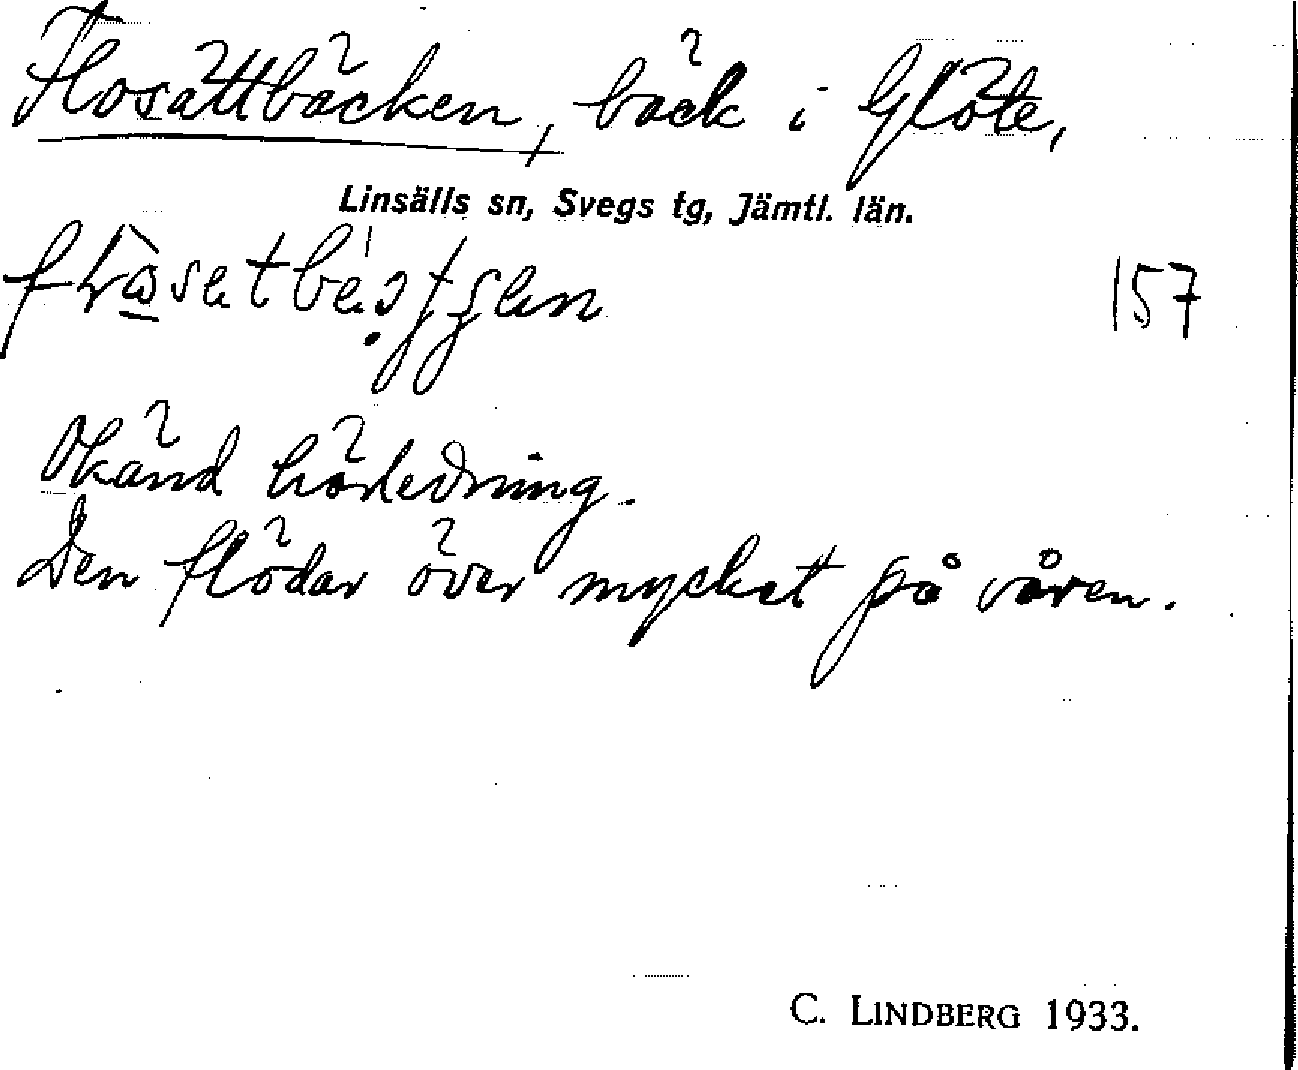 Flosättbäcken, bäck i Glöte,
Linsälls sn, Svegs tg, Jämtl. län.
157
Okänd härledning.
Den flödar över mycket på våren.
C. LINDBERG 1933.